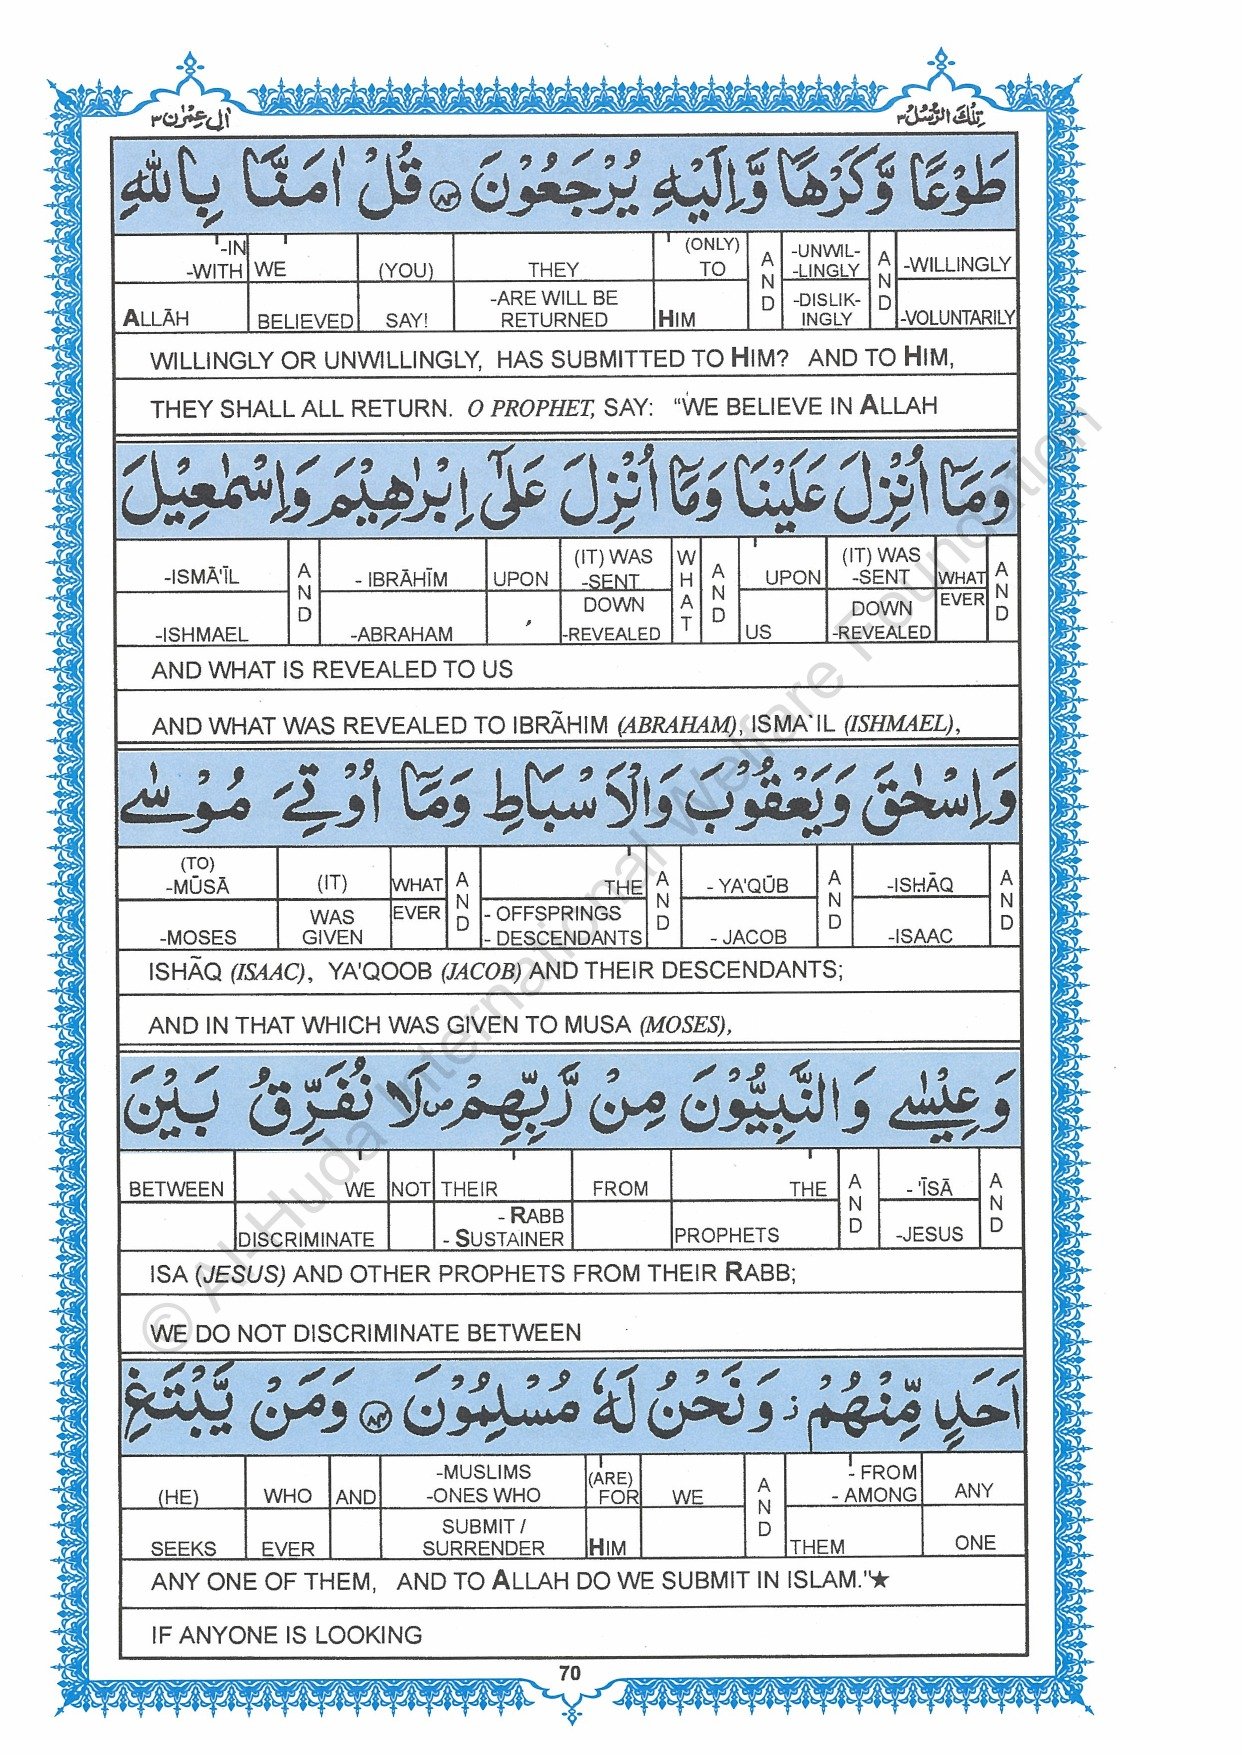 تِلْكَ الرُّسُلُ ٣
اٰلِ عِمْرٰن ٣
طَوْعًا وَّكَرْهًا وَّاِلَيْهِ يُرْجَعُوْنَ ﴿٨٣﴾ قُلْ اٰمَنَّا بِاللّٰهِ
-IN -WITH ALLĀH | WE BELIEVED | (YOU) SAY! | THEY -ARE WILL BE RETURNED | (ONLY) TO HIM | AND | -UNWIL- -LINGLY -DISLIK- INGLY | AND | -WILLINGLY -VOLUNTARILY
WILLINGLY OR UNWILLINGLY, HAS SUBMITTED TO HIM? AND TO HIM,
THEY SHALL ALL RETURN. O PROPHET, SAY: “WE BELIEVE IN ALLAH
وَمَآ اُنْزِلَ عَلَيْنَا وَمَآ اُنْزِلَ عَلٰٓى اِبْرٰهِيْمَ وَاِسْمٰعِيْلَ
-ISMĀ'ĪL -ISHMAEL | AND | - IBRĀHĪM -ABRAHAM | UPON | (IT) WAS -SENT DOWN -REVEALED | WHAT | AND | UPON US | (IT) WAS -SENT DOWN -REVEALED | WHAT EVER | AND
AND WHAT IS REVEALED TO US
AND WHAT WAS REVEALED TO IBRÃHIM (ABRAHAM), ISMA`IL (ISHMAEL),
وَاِسْحٰقَ وَيَعْقُوْبَ وَالْاَسْبَاطِ وَمَآ اُوْتِيَ مُوْسٰى
(TO) -MŪSĀ -MOSES | (IT) WAS GIVEN | WHAT EVER | AND | THE - OFFSPRINGS - DESCENDANTS | AND | - YA'QŪB - JACOB | AND | -ISHĀQ -ISAAC | AND
ISHÃQ (ISAAC), YA'QOOB (JACOB) AND THEIR DESCENDANTS;
AND IN THAT WHICH WAS GIVEN TO MUSA (MOSES),
وَعِيْسٰى وَالنَّبِيُّوْنَ مِنْ رَّبِّهِمْ ص لَا نُفَرِّقُ بَيْنَ
BETWEEN | WE DISCRIMINATE | NOT | THEIR - RABB - SUSTAINER | FROM | THE PROPHETS | AND | - 'ĪSĀ -JESUS | AND
ISA (JESUS) AND OTHER PROPHETS FROM THEIR RABB;
WE DO NOT DISCRIMINATE BETWEEN
اَحَدٍ مِّنْهُمْ ز وَنَحْنُ لَهٗ مُسْلِمُوْنَ ﴿٨٤﴾ وَمَنْ يَّبْتَغِ
(HE) SEEKS | WHO EVER | AND | -MUSLIMS -ONES WHO SUBMIT / SURRENDER | (ARE) FOR HIM | WE | AND | - FROM - AMONG THEM | ANY ONE
ANY ONE OF THEM, AND TO ALLAH DO WE SUBMIT IN ISLAM."★
IF ANYONE IS LOOKING
70
© Al-Huda International Welfare Foundation